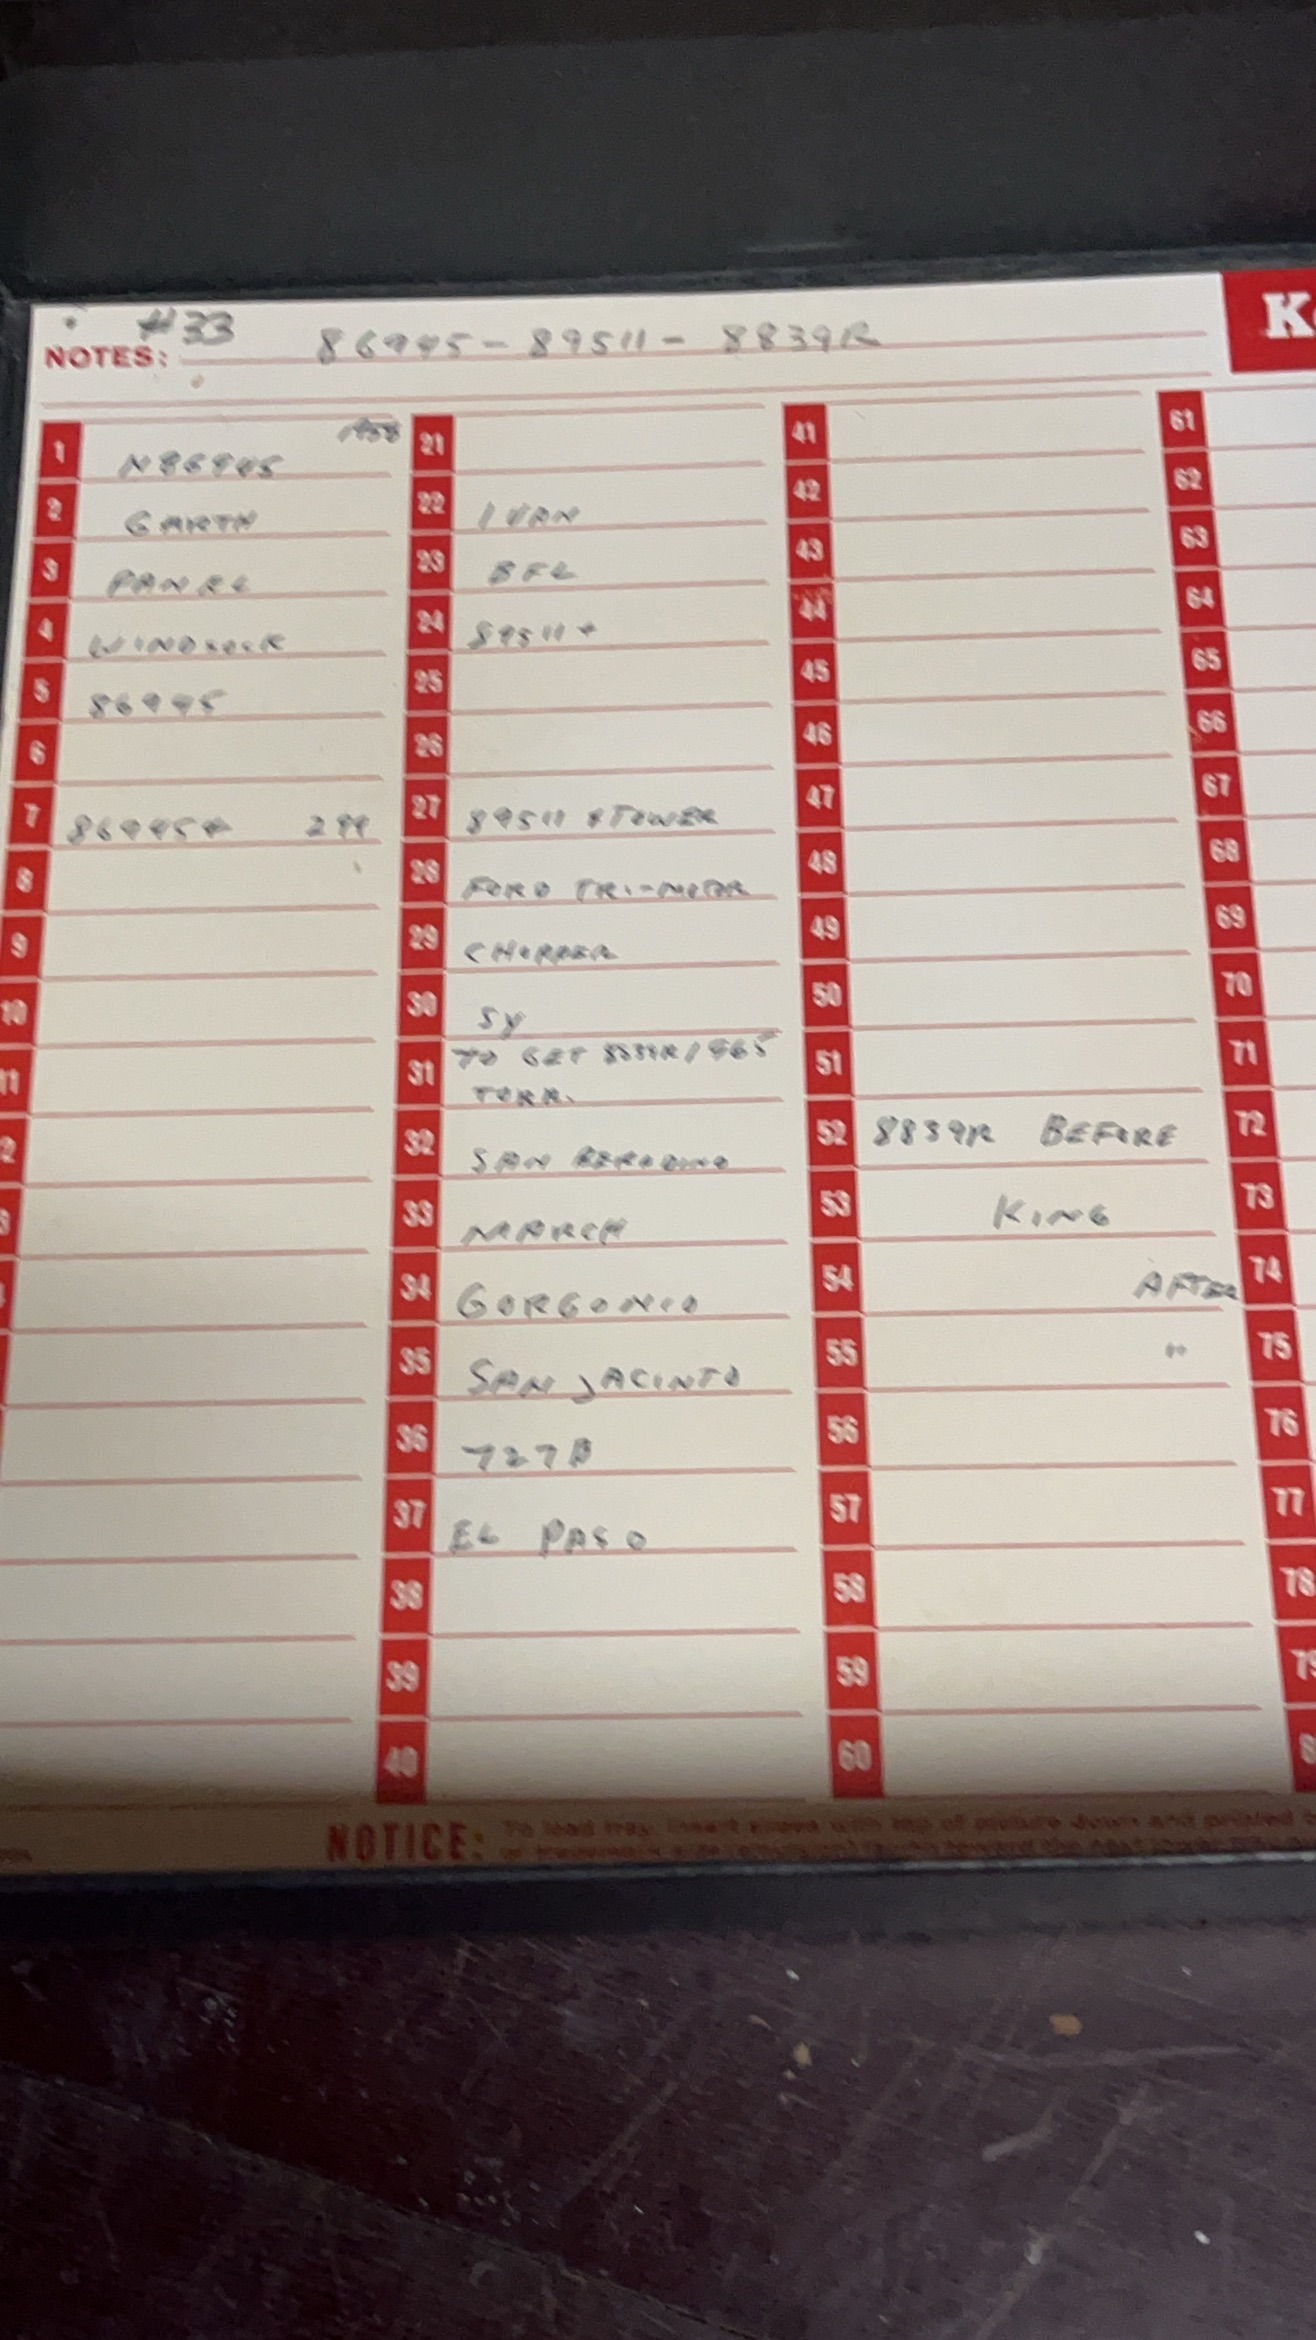 #33
NOTES: 86945-89511-8839R
1 N86945 1958
2 GARTH
3 PANEL
4 WINDSOCK
5 86945
6
7 86945+ 299
8
9
10
21
22 IVAN
23 BFL
24 89511+
25
26
27 89511 & TOWER
28 FORD TRI-MOTOR
29 CHOPPER
30 SY
31 TO GET 8839R/1965
TORR.
32 SAN BERADINO
33 MARCH
34 GORGONIO
35 SAN JACINTO
36 727B
37 EL PASO
38
39
40
41
42
43
44
45
46
47
48
49
50
51
52 8839R BEFORE
53 KING
54 AFTER
55 "
56
57
58
59
60
61
62
63
64
65
66
67
68
69
70
71
72
73
74
75
76
77
78
NOTICE: To load tray, insert slides with top of picture down and printed